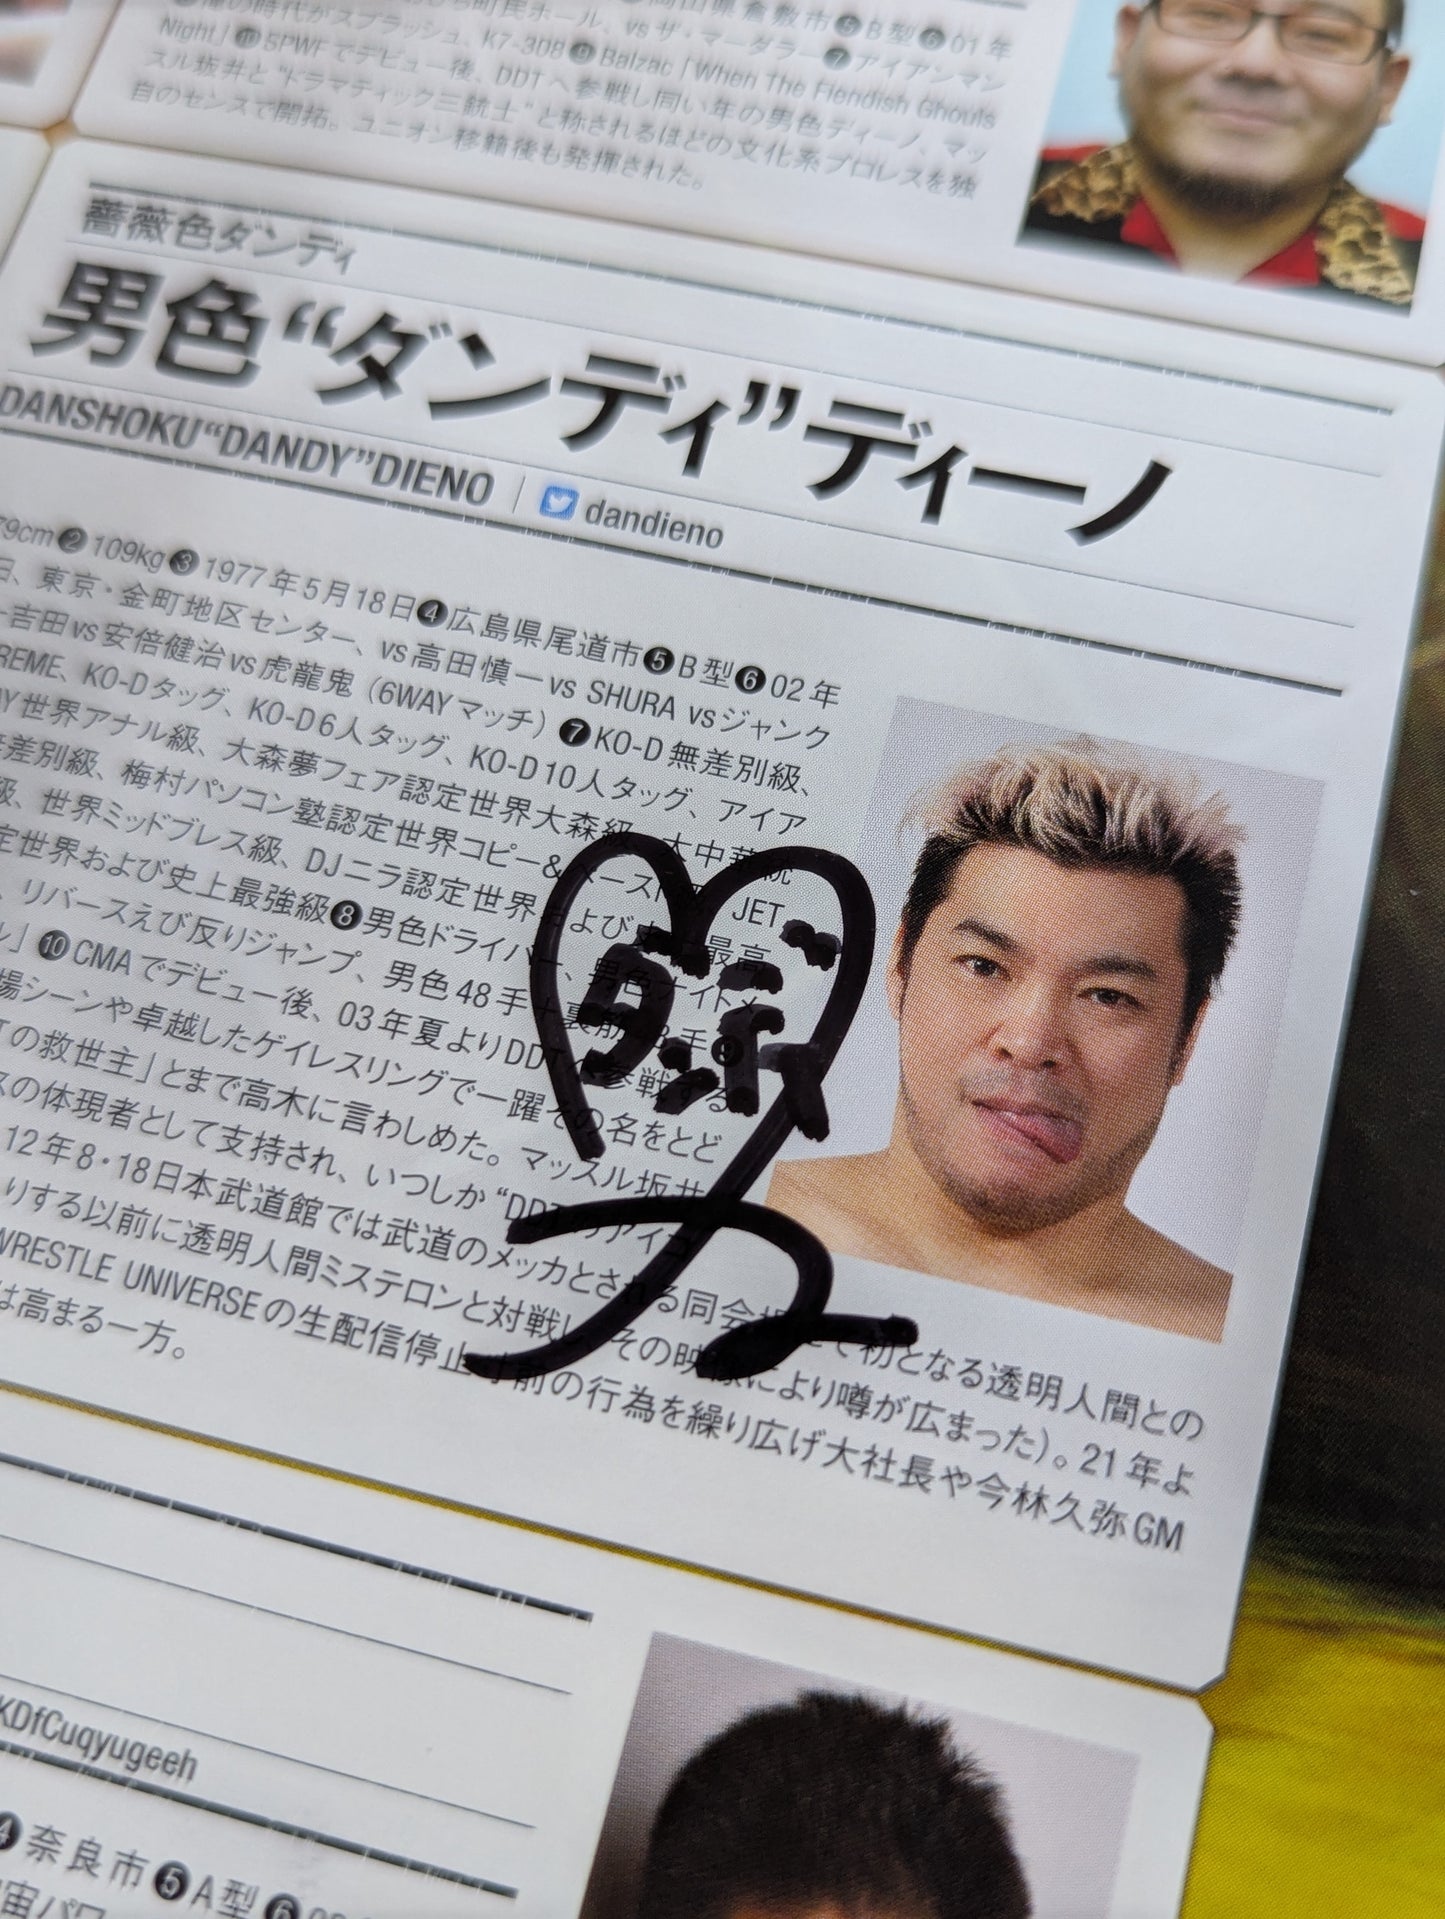 岡山県倉敷市❺B型❻01年
町民ホール、vsザ・マーダラー❼アイアンマン
俺の時代がスプラッシュ、K7-308❾Balzac「When The Fiendish Ghouls
Night」❿SPWFでデビュー後、DDTへ参戦し同い年の男色ディーノ、マッ
スル坂井と“ドラマティック三銃士”と称されるほどの文化系プロレスを独
自のセンスで開拓。ユニオン移籍後も発揮された。
薔薇色ダンディ
男色“ダンディ”ディーノ
DANSHOKU“DANDY”DIENO
dandieno
79cm❷109kg❸1977年5月18日❹広島県尾道市❺B型❻02年
日、東京・金町地区センター、vs高田慎一vs SHURA vsジャンク
ー吉田vs安倍健治vs虎龍鬼（6WAYマッチ）❼KO-D無差別級、
REME、KO-Dタッグ、KO-D6人タッグ、KO-D10人タッグ、アイア
AY世界アナル級、大森夢フェア認定世界大森級、大中華統
差別級、梅村パソコン塾認定世界コピー&ペースト級、JET
級、世界ミッドブレス級、DJニラ認定世界および史上最高
定世界および史上最強級❽男色ドライバー、男色ナイトメ
、リバースえび反りジャンプ、男色48手+裏筋 手❾
ル」❿CMAでデビュー後、03年夏よりDDTへ参戦する
場シーンや卓越したゲイレスリングで一躍その名をとど
Tの救世主」とまで高木に言わしめた。マッスル坂井
スの体現者として支持され、いつしか“DDTのアイコ
12年8・18日本武道館では武道のメッカとされる同会場にて初となる透明人間との
りする以前に透明人間ミステロンと対戦し、その映像により噂が広まった）。21年よ
WRESTLE UNIVERSEの生配信停止寸前の行為を繰り広げ大社長や今林久弥GM
は高まる一方。
KDfCuqyugeeh
❹奈良市❺A型❻
宙パワ